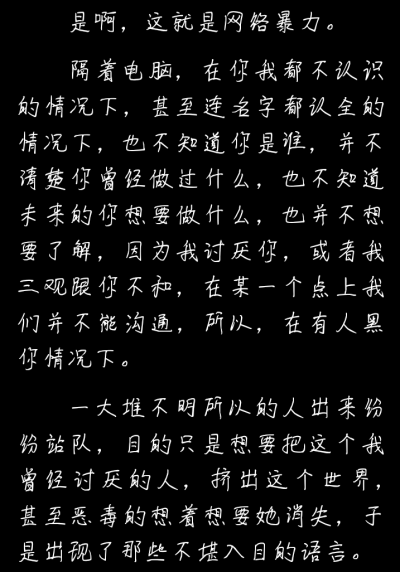 是啊，这就是网络暴力。
隔着电脑，在你我都不认识
的情况下，甚至连名字都认全的
情况下，也不知道你是谁，并不
清楚你曾经做过什么，也不知道
未来的你想要做什么，也并不想
要了解，因为我讨厌你，或者我
三观跟你不和，在某一个点上我
们并不能沟通，所以，在有人黑
你情况下。
一大堆不明所以的人出来纷
纷站队，目的只是想要把这个我
曾经讨厌的人，挤出这个世界，
甚至恶毒的想着想要她消失，于
是出现了那些不堪入目的语言。